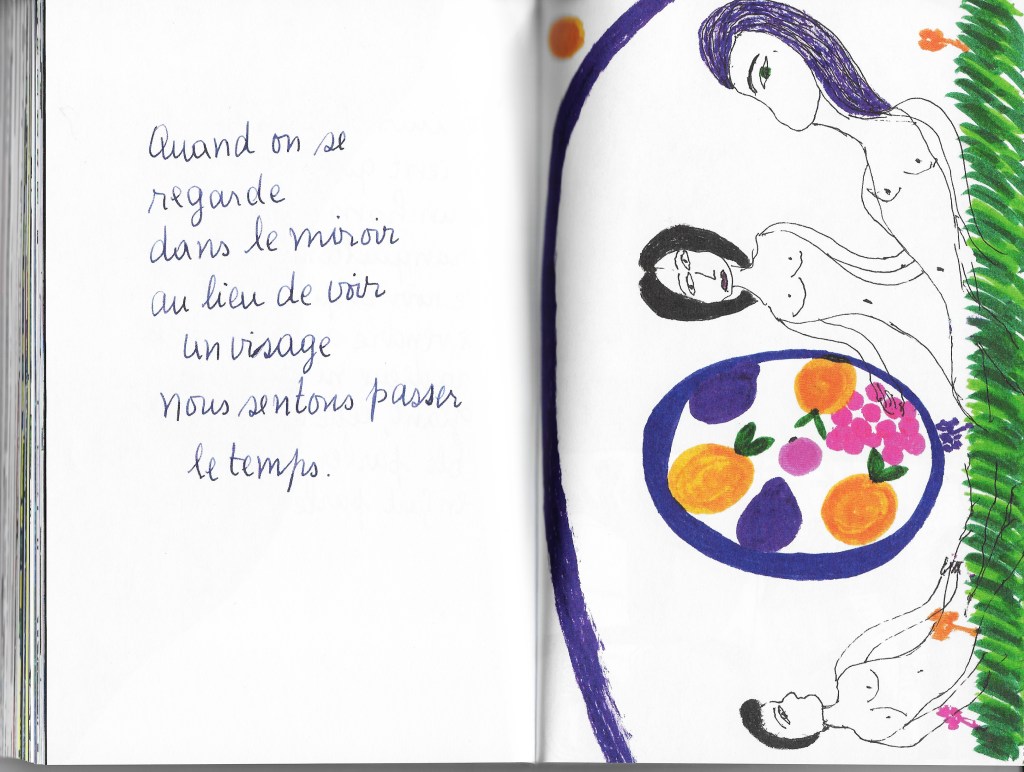 Quand on se
regarde
dans le miroir
au lieu de voir
un visage
nous sentons passer
le temps.